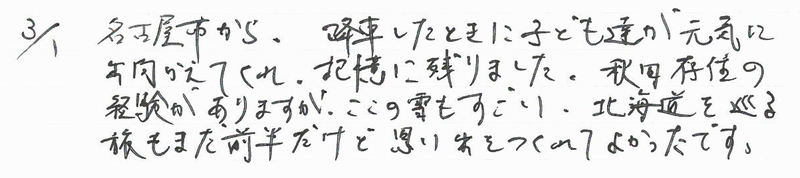 3/1 名古屋市から。降車したときに子ども達が元気に
出向かえてくれ、記憶に残りました。秋田在住の
経験がありますが、ここの雪もすごい。北海道を巡る
旅もまだ前半だけど思い出をつくれてよかったです。